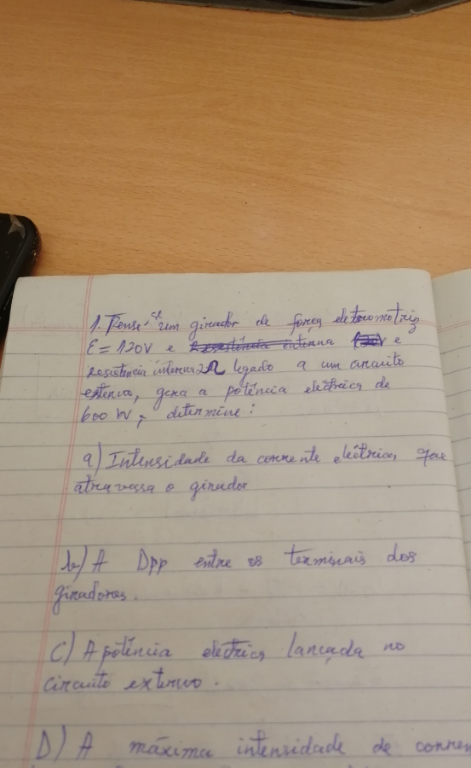 1. Tense-se um girador de força eletromotriz
E = 120V e e
resistencia interna 2Ω legado a um circuito
externo, gera a potência eléctrica de
600 W, determine:
a) Intensidade da corrente eléctrica que
atravessa o girador
b) A Dpp entre os terminais dos
giradores.
C) A potência eléctrica lançada no
circuito externo.
D) A máxima intensidade de corren